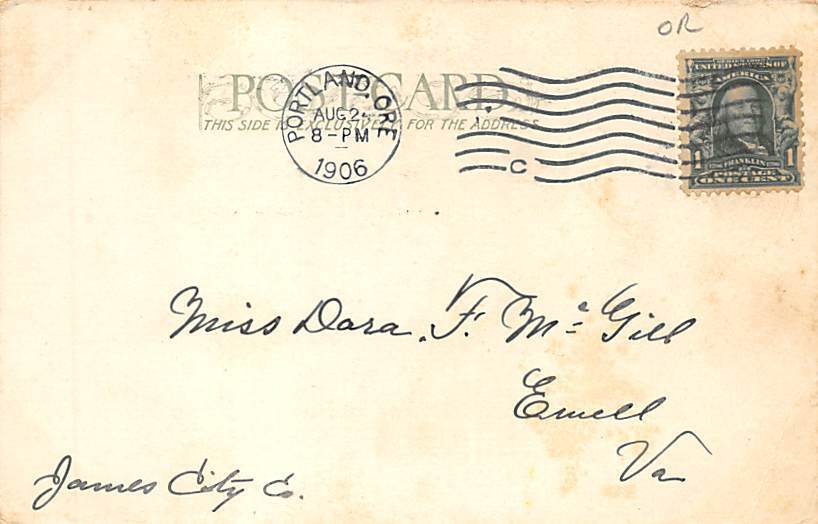 OR
POST CARD
THIS SIDE IS EXCLUSIVELY FOR THE ADDRESS
PORTLAND, ORE
AUG 2
8-PM
1906
C
SERIES 1902
UNITED STATES OF
AMERICA
1 FRANKLIN 1
POSTAGE
ONE CENT
Miss Dora. F. Mc Gill
Ewell
Va
James City Co.